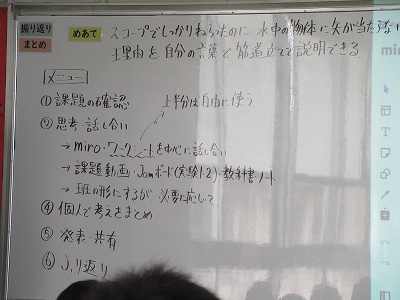 振り返り
まとめ
めあて
スコープでしっかりねらったのに 水中の物体に矢が当たらない
理由を自分の言葉で筋道立てて説明できる
メニュー
①課題の確認
上半分は自由に使う
②思考・話し合い
→miro・ワークシートを中心に話し合い
→課題動画・Jamボード(実験1.2)・教科書・ノート
→班の形にするが 必要に応じて
④個人で考えをまとめ
⑤発表・共有
⑥ふり返り
mir